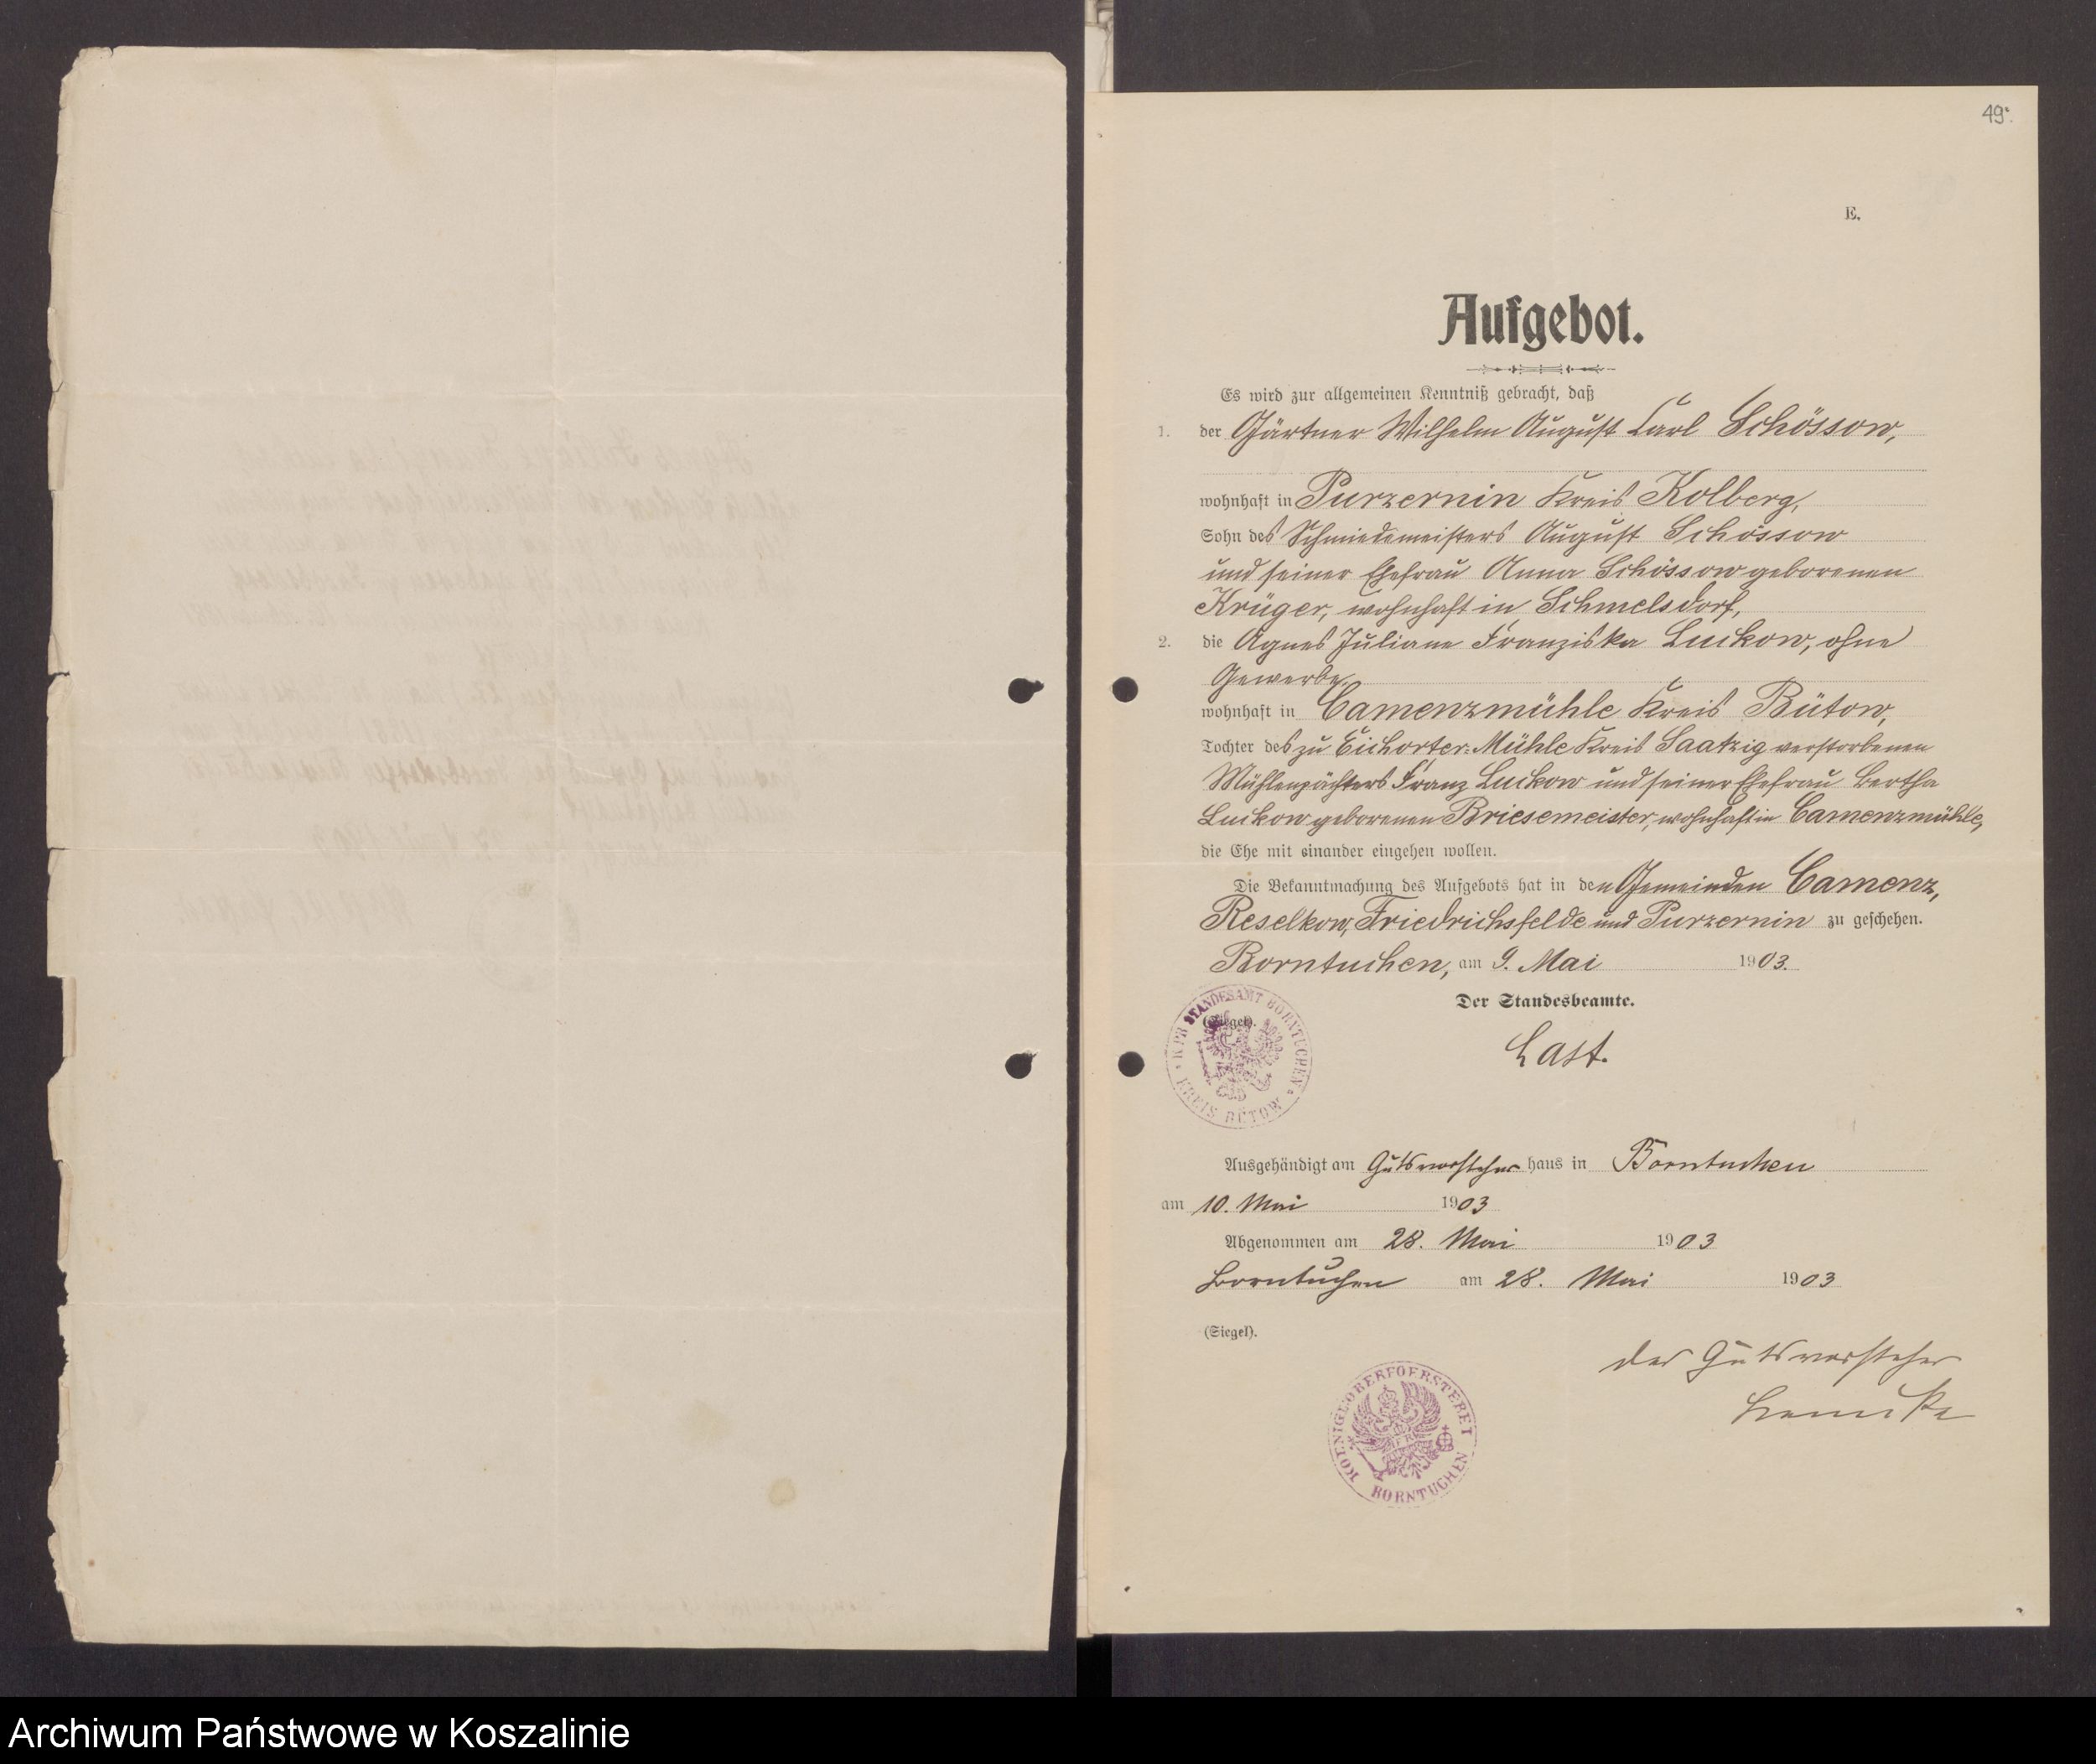 49.
E.
Aufgebot.
Es wird zur allgemeinen Kenntniß gebracht, daß
1. der Gärtner Wilhelm August Carl Schössow,
wohnhaft in Purzernin Kreis Kolberg,
Sohn des Schmiedemeisters August Schössow
und seiner Ehefrau Anna Schössow geborenen
Krüger, wohnhaft in Schmelsdorf,
2. die Agnes Juliane Franziska Luckow, ohne
Gewerbe,
wohnhaft in Camenzmühle Kreis Bütow,
Tochter des zu Eichorter-Mühle Kreis Saatzig verstorbenen
Mühlenpächters Franz Luckow und seiner Ehefrau Bertha
Luckow geborenen Briesemeister, wohnhaft in Camenzmühle,
die Ehe mit einander eingehen wollen.
Die Bekanntmachung des Aufgebots hat in den Gemeinden Camenz,
Reselkow, Friedrichsfelde und Purzernin zu geschehen.
Borntuchen, am 9. Mai 1903.
Der Standesbeamte.
(Siegel).
KPR STANDESAMT BORNTUCHEN
KREIS BÜTOW
Last.
Ausgehändigt am Gutsvorsteher haus in Borntuchen
am 10. Mai 1903
Abgenommen am 28. Mai 1903
Borntuchen am 28. Mai 1903
(Siegel).
Der Gutsvorsteher
KOENIGL OBERFOERSTEREI
BORNTUCHEN
Archiwum Państwowe w Koszalinie